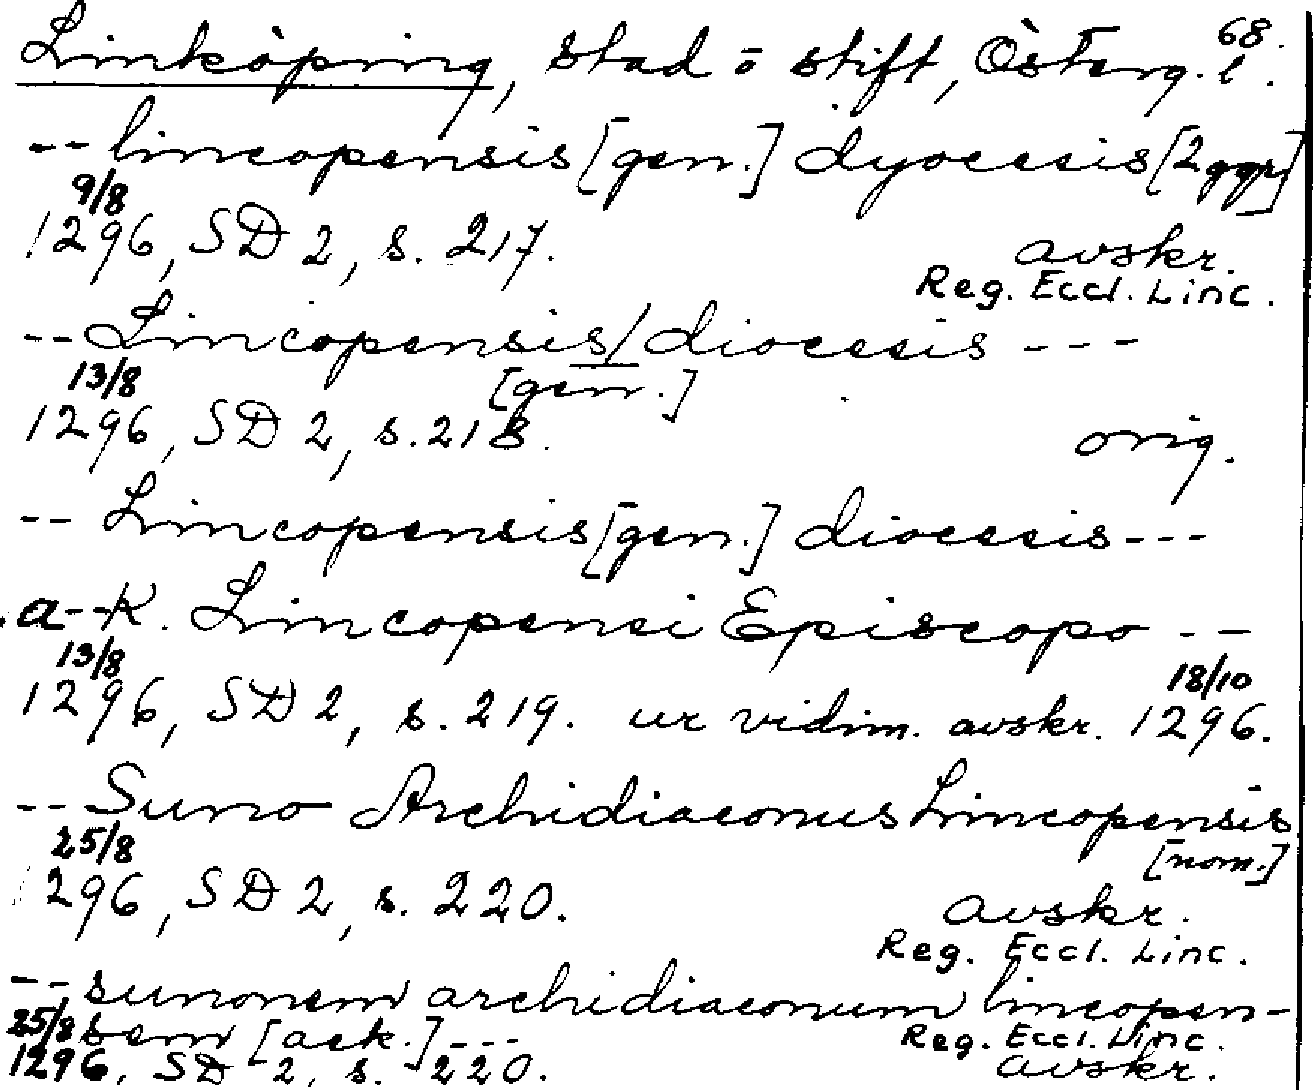 68.
Linköping, stad o stift, Österg. l.
-- lincopensis [gen.] dyocesis [2 ggr]
9/8
1296, SD 2, s. 217. avskr.
Reg. Eccl. Linc.
-- Lincopensis/ diocesis ---
13/8 [gen.]
1296, SD 2, s. 218. orig.
-- Lincopensis [gen.] diocesis ---
a -- K. Lincopensi Episcopo --
13/8 18/10
1296, SD 2, s. 219. ur vidim. avskr. 1296.
-- Suno Archidiaconus Lincopensis
25/8 [nom.]
1296, SD 2, s. 220. avskr.
Reg. Eccl. Linc.
-- sunonem archidiaconum lincopen-
25/8 sem [ack.] --- Reg. Eccl. Linc.
1296, SD 2, s. 220. avskr.